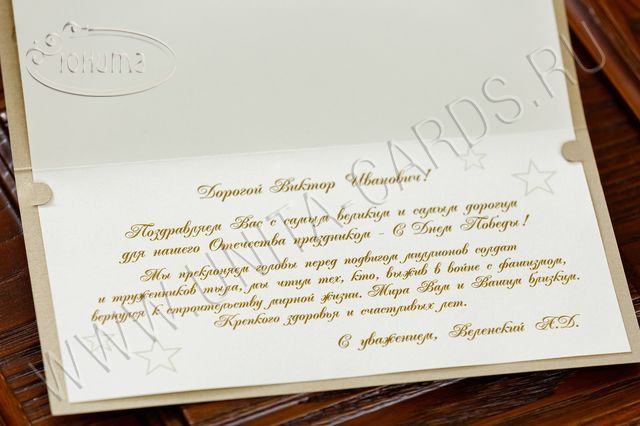 Юнита
Дорогой Виктор Иванович!
Поздравляем Вас с самым великим и самым дорогим
для нашего Отечества праздником - С Днем Победы!
Мы преклоняем головы перед подвигом миллионов солдат
и тружеников тыла, мы чтим тех, кто, выжив в войне с фашизмом,
вернулся к строительству мирной жизни. Мира Вам и Вашим близким.
Крепкого здоровья и счастливых лет.
С уважением, Веленский А.Д.
WWW.UNITA-CARDS.RU